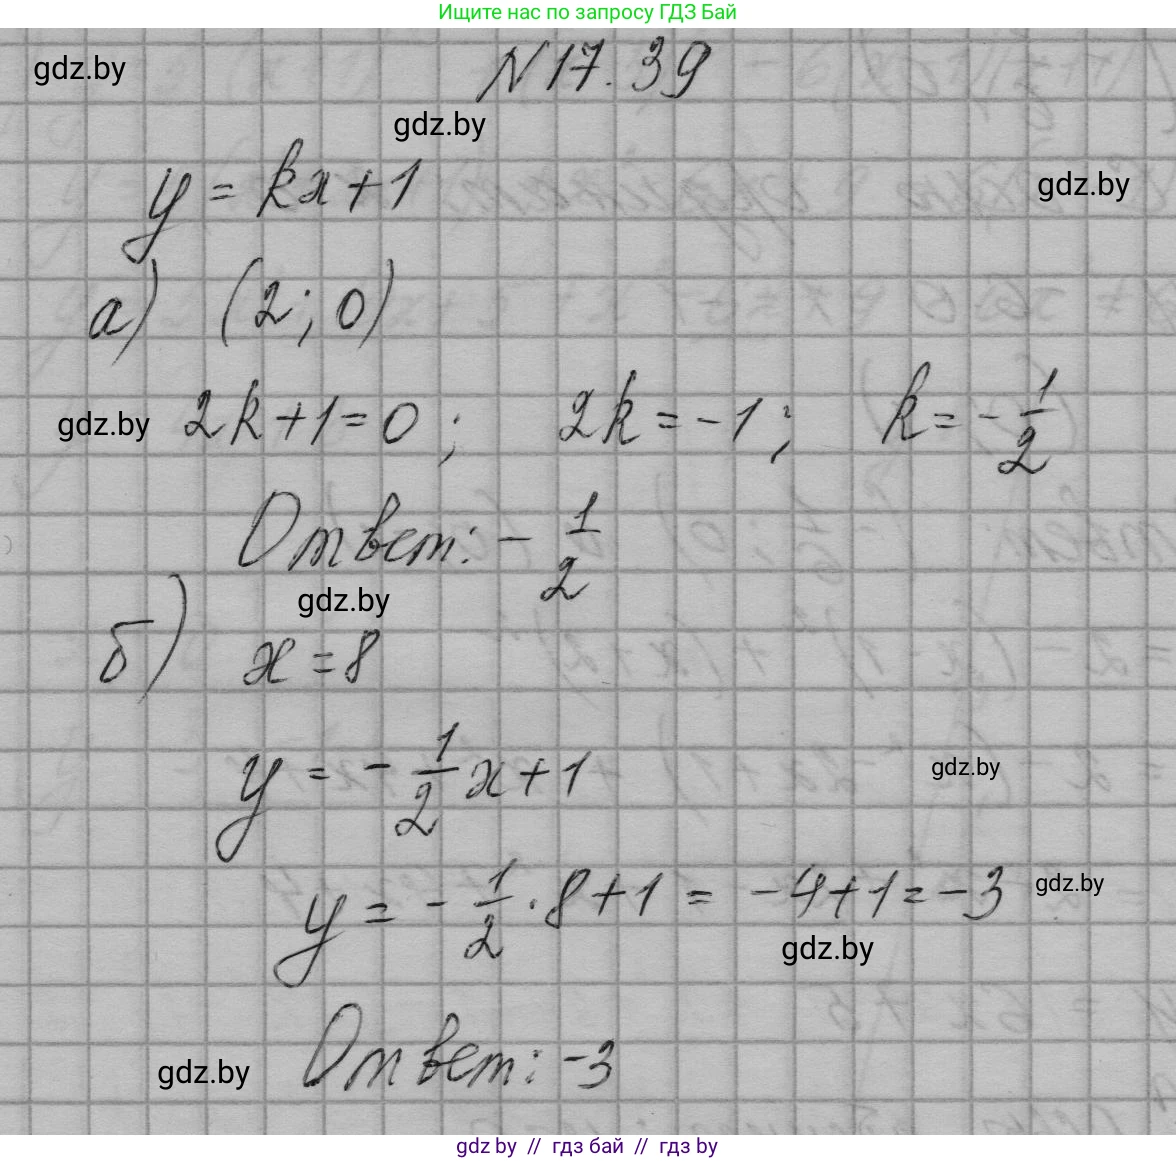 Ищите нас по запросу ГДЗ Бай
gdz.by
N 17.39
gdz.by
y = kx + 1
gdz.by
а) (2; 0)
gdz.by
2k + 1 = 0; 2k = -1; k = -1/2
Ответ: - 1/2
gdz.by
б) x = 8
y = - 1/2 x + 1
gdz.by
y = - 1/2 · 8 + 1 = -4 + 1 = -3
gdz.by
gdz.by
Ответ: -3
gdz.by
gdz by // гдз бай // гдз by